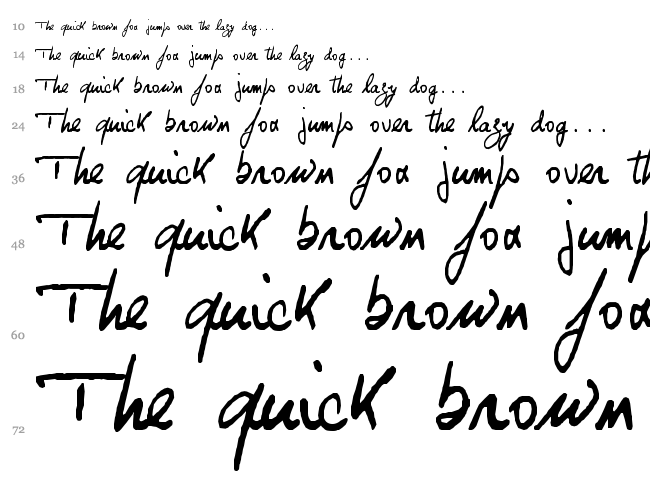 10 The quick brown fox jump over the lazy dog...
14 The quick brown fox jump over the lazy dog...
18 The quick brown fox jump over the lazy dog...
24 The quick brown fox jump over the lazy dog...
36 The quick brown fox jump over th
48 The quick brown fox jump
60 The quick brown fox
72 The quick brown